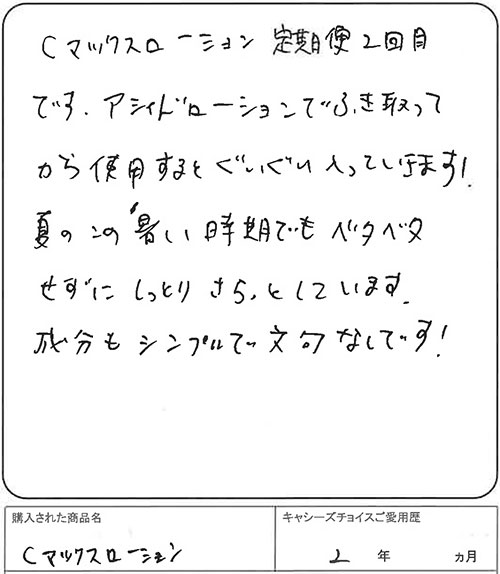 Cマックスローション 定期便2回目
です。アシィドローションでふき取って
から使用するとぐいぐい入っていきます!
夏のこの暑い時期でもベタベタ
せずにしっとりさらっとしています。
成分もシンプルで文句なしです!
購入された商品名
キャシーズチョイスご愛用歴
Cマックスローション
2年 ヵ月